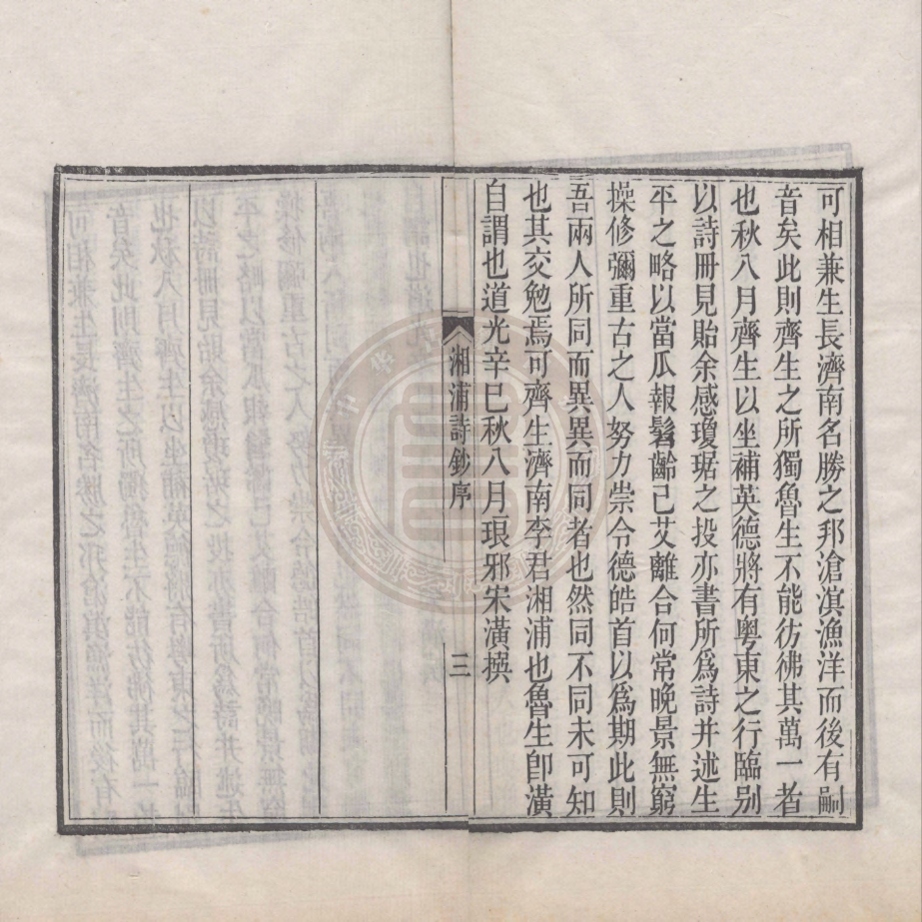 可相兼生長濟南名勝之邦滄溟漁洋而後有嗣
音矣此則齊生之所獨魯生不能彷彿其萬一者
也秋八月齊生以坐補英德將有粵東之行臨别
以詩冊見貽余感瓊琚之投亦書所爲詩并述生
平之略以當瓜報髫齡已艾離合何常晚景無窮
操修彌重古之人努力崇令德皓首以爲期此則
吾兩人所同而異異而同者也然同不同未可知
也其交勉焉可齊生濟南李君湘浦也魯生卽潢
自謂也道光辛巳秋八月琅邪宋潢撰
湘浦詩鈔序
三